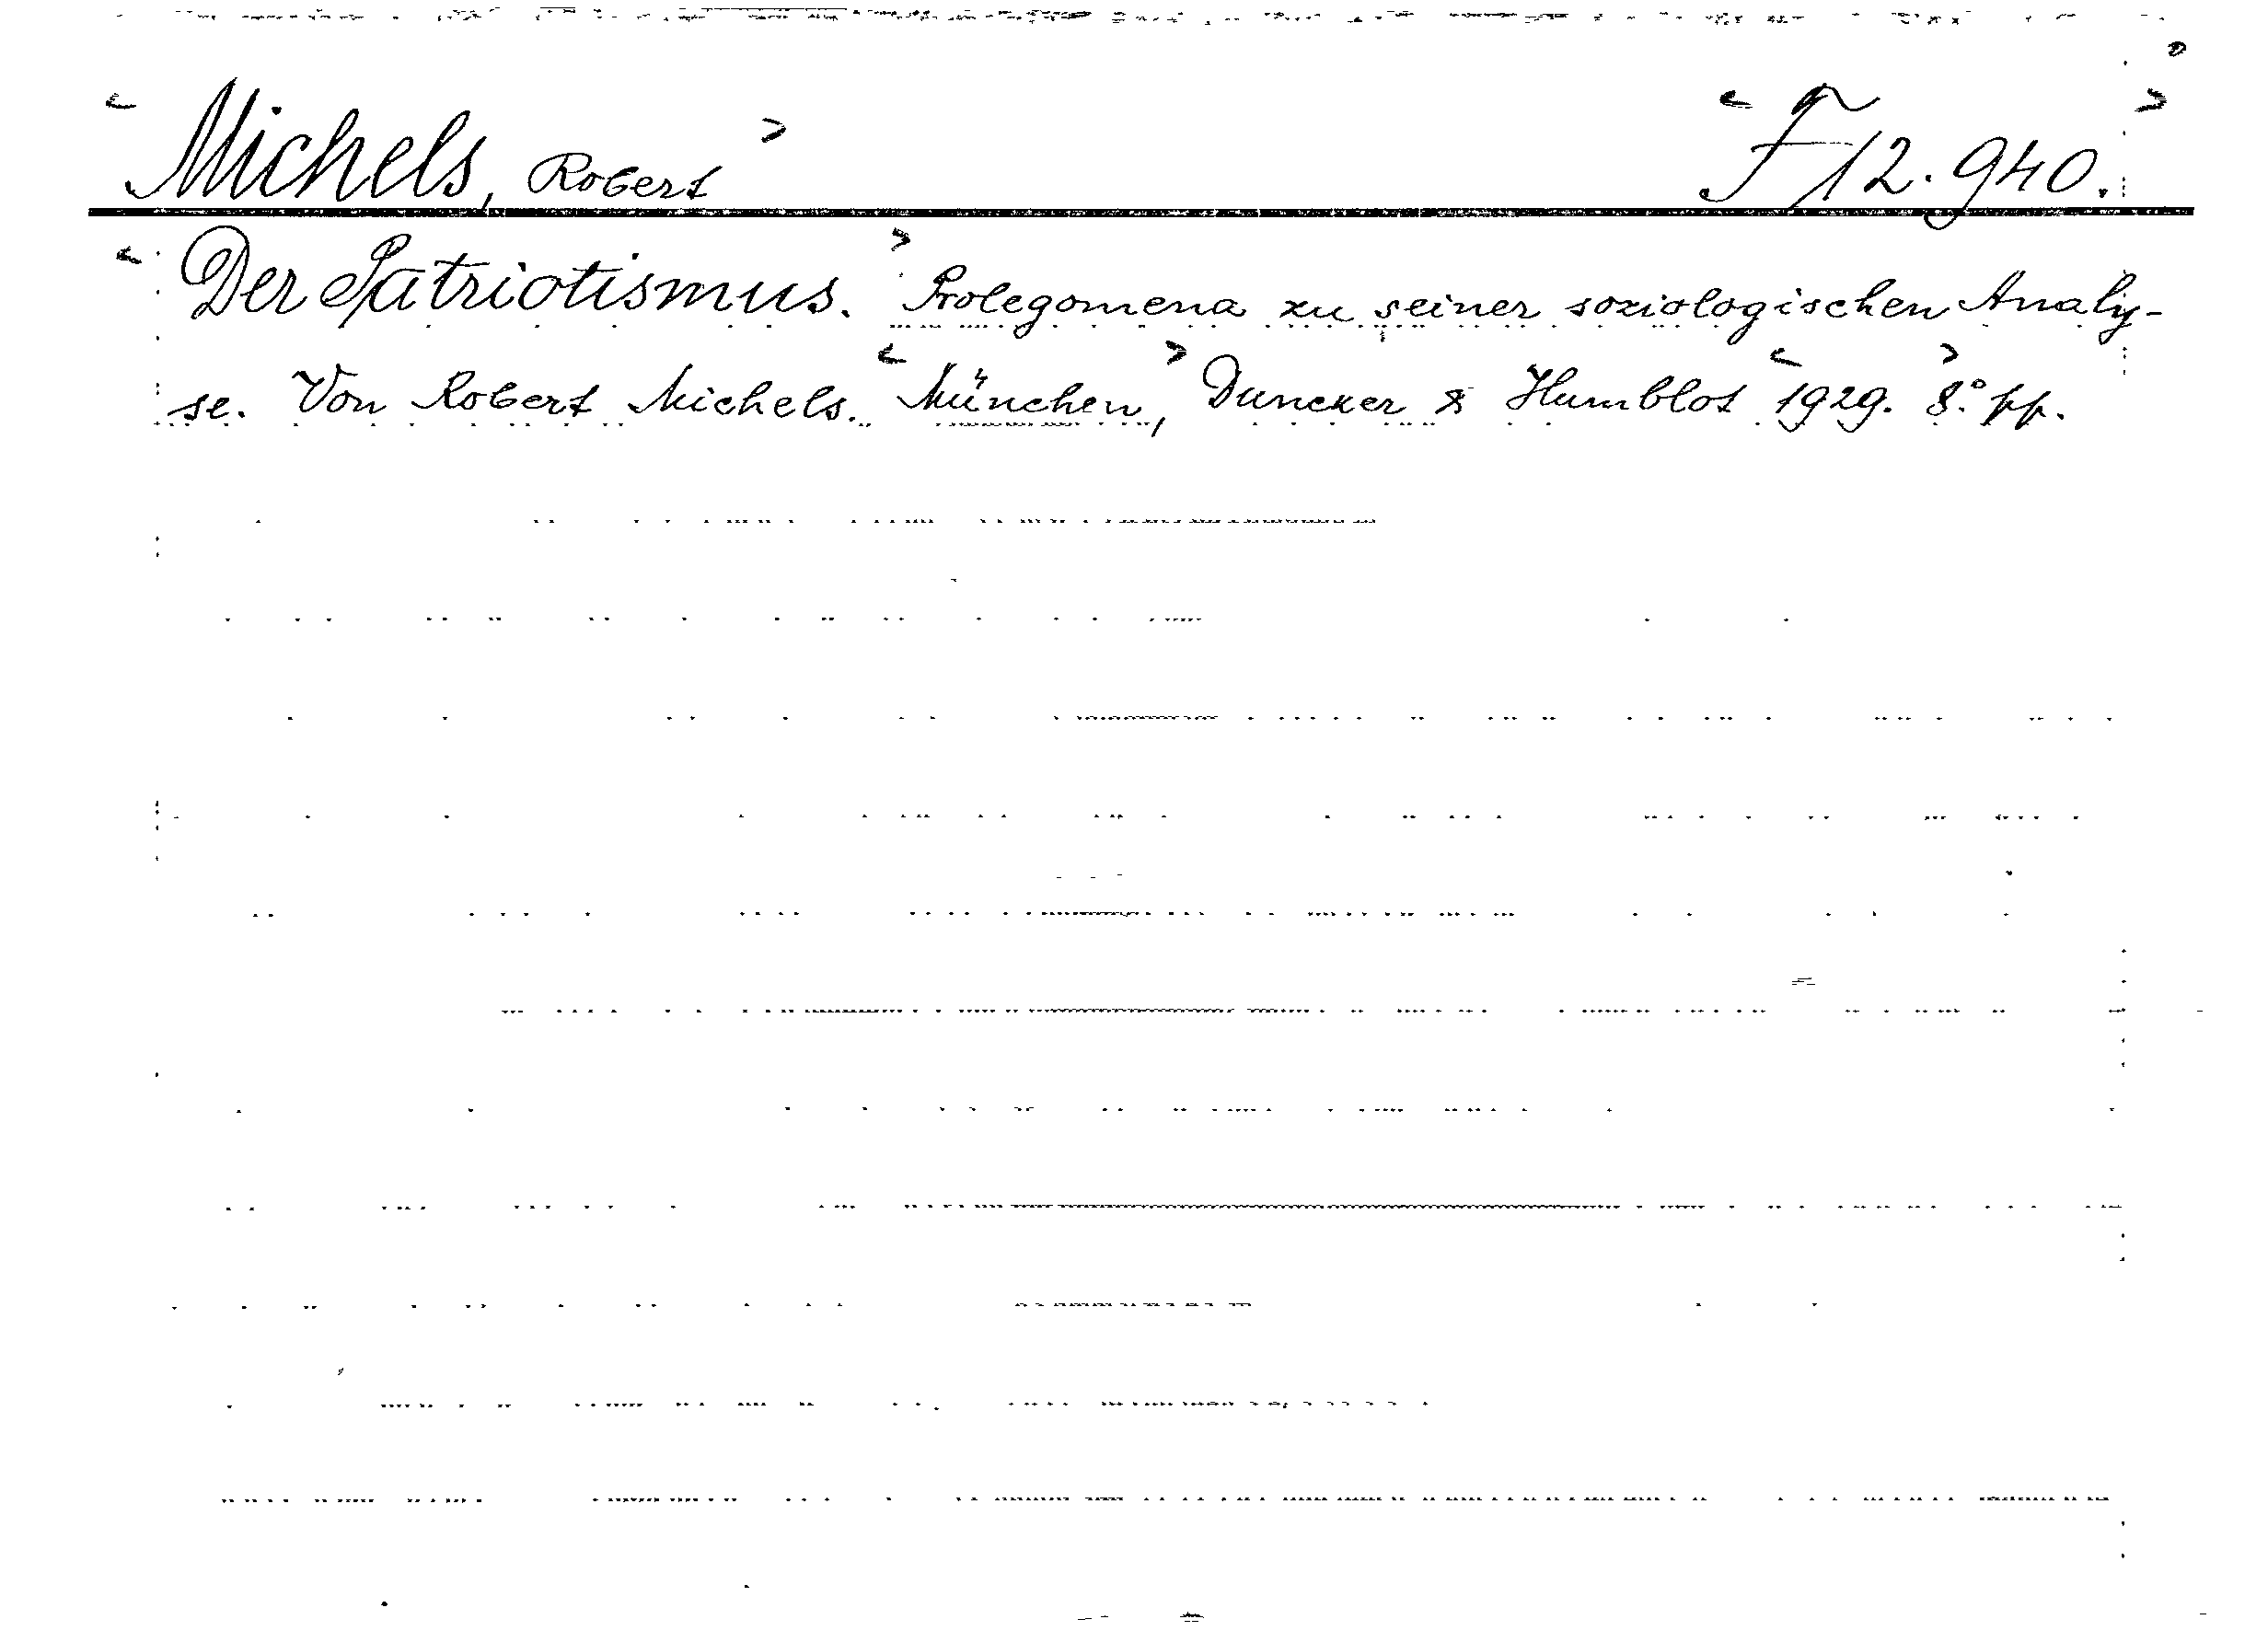 < Michels, Robert > < F 12.940. >
< Der Patriotismus. > Prolegomena zu seiner soziologischen Analy-
se. Von Robert Michels. < München, > Duncker & Humblot < 1929. > 8.° pp.